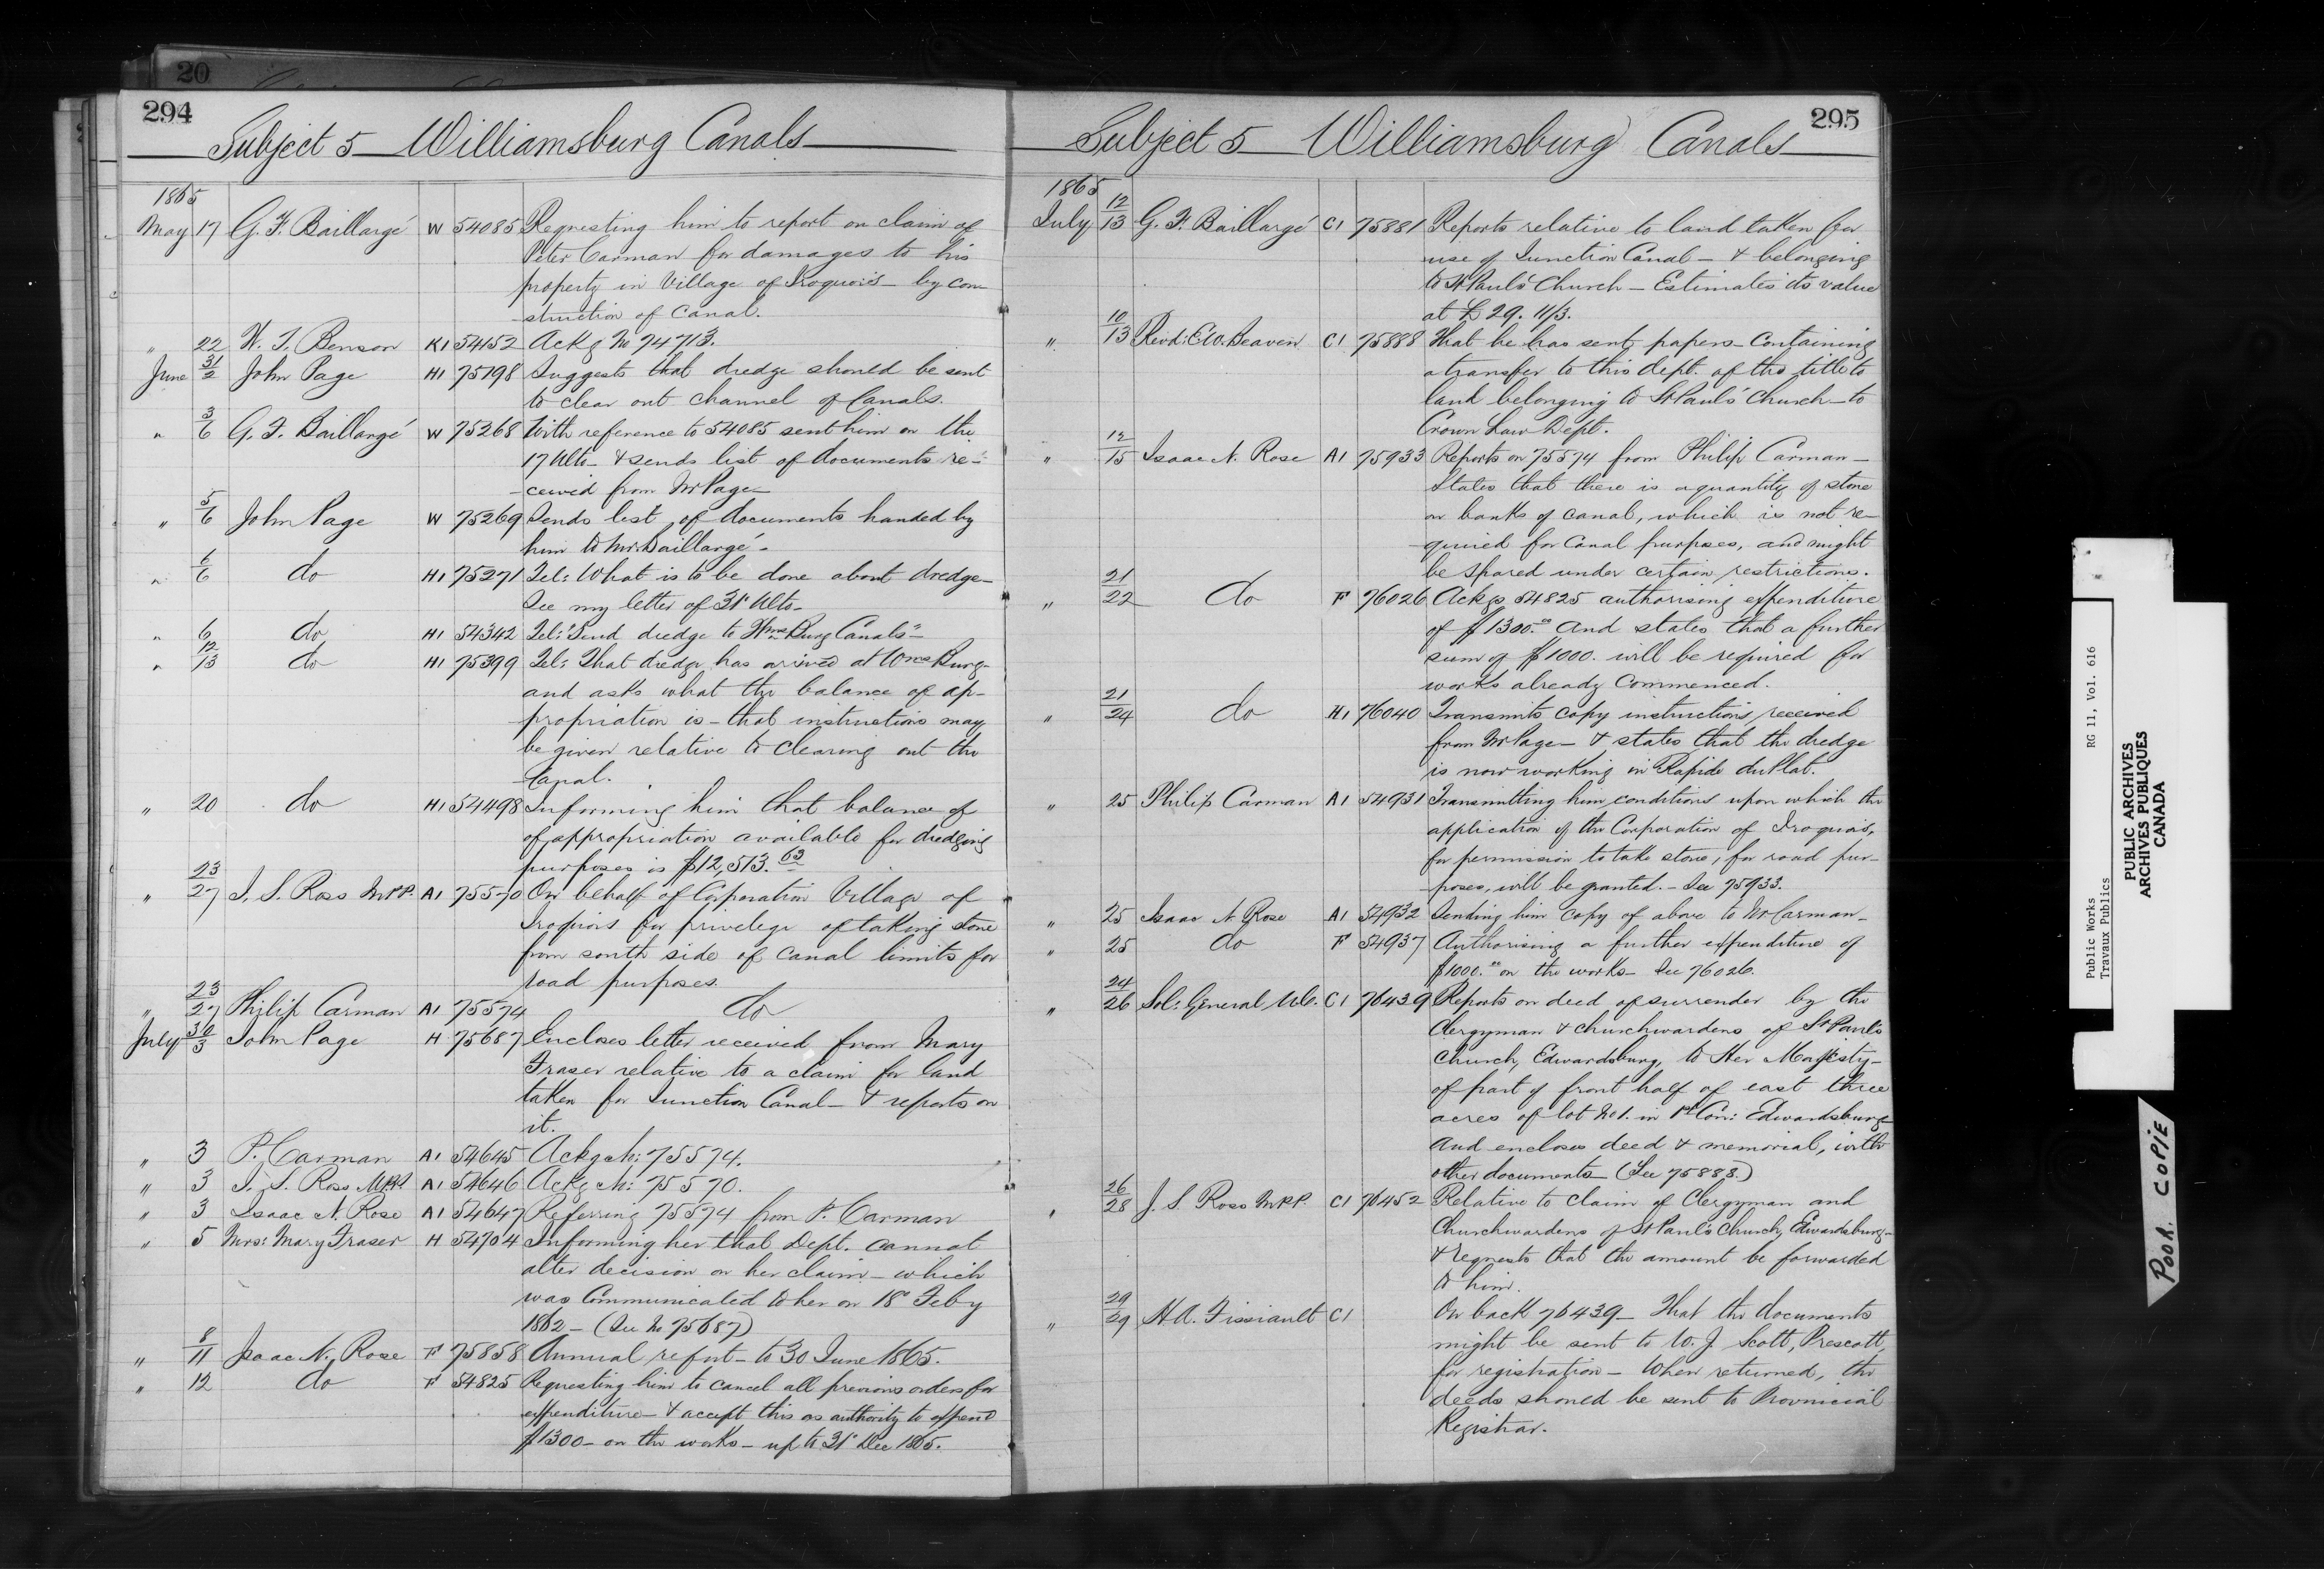 20
294
Subject 5 Williamsburg Canals
1865
May 17 G. F. Baillargé W 54085 Requesting him to report on claim of
Peter Carman for damages to his
property in Village of Iroquois - by con
-struction of Canal.
" 22 W. T. Benson K1 54152 Ackg No 74713.
June 31/2 John Page H1 75198 Suggests that dredge should be sent
to clear out channel of Canals.
" 3/6 G. F. Baillargé W 75268 With reference to 54085 sent him on the
17 Ulto - & sends list of documents re-
-ceived from Mr Page
" 5/6 John Page W 75269 Sends list of documents handed by
him to Mr. Baillargé -
" 6/6 do H1 75271 Tel: What is to be done about dredge -
See my letter of 31st Ulto -
" 6 do H1 54342 Tel: "Send dredge to Wms Burg Canals" -
" 12/13 do H1 75399 Tel: That dredge has arrived at Wms Burg -
and asks what the balance of ap-
propriation is - that instructions may
be given relative to clearing out the
Canal.
" 20 do H1 54498 Informing him that balance of
of appropriation available for dredging
purposes is $12,513.63
" 23/27 J. S. Ross M.P.P. A1 75570 On behalf of Corporation Village of
Iroquois for privelege of taking stone
from south side of canal limits for
road purposes.
" 23/27 Philip Carman A1 75574 do
July 30/3 John Page H 75687 Encloses letter received from Mary
Fraser relative to a claim for land
taken for Junction Canal - & reports on
it.
" 3 P. Carman A1 54645 Ackg No: 75574.
" 3 J. S. Ross MPP A1 54646 Ackg No: 75570.
" 3 Isaac N. Rose A1 54647 Referring 75574 from P. Carman
" 5 Mrs: Mary Fraser H 54704 Informing her that Dept. cannot
alter decision on her claim - which
was Communicated to her on 18th Feby
1862 - (See No 75687)
" 8/11 Isaac N. Rose F 75858 Annual report - to 30 June 1865.
" 12 do F 54825 Requesting him to cancel all previous orders for
expenditure - & accept this as authority to expend
$1300 - on the works - up to 31st Dec 1865.
295
Subject 5 Williamsburg Canals
1865
July 12/13 G. F. Baillargé C1 75881 Reports relative to land taken for
use of Junction Canal - & belonging
to St Paul's Church - Estimates its value
at £29. 11/3.
" 10/13 Revd: E. W. Beaven C1 75888 That he has sent papers - containing
a transfer to this dept. of the title to
land belonging to St Paul's Church - to
Crown Law Dept.
" 12/15 Isaac N. Rose A1 75933 Reports on 75574 from Philip Carman -
States that there is a quantity of stone
on banks of canal, which is not re-
-quired for Canal purposes, and might
be spared under certain restrictions.
" 21/22 do F 76026 Ackgs 54825 authorising expenditure
of $1300.00 and states that a further
sum of $1000. will be required for
works already commenced.
" 21/24 do H1 76040 Transmits copy instructions received
from Mr Page - & states that the dredge
is now working in Rapide du Plat.
" 25 Philip Carman A1 54931 Transmitting him conditions upon which the
application of the Corporation of Iroquois,
for permission to take stone, for road pur-
poses, will be granted. - See 75933.
" 25 Isaac N Rose A1 54932 Sending him copy of above to Mr Carman -
" 25 do F 54937 Authorising a further expenditure of
$1000.00 on the works - See 76026.
" 24/26 Sol: General U.C. C1 76439 Reports on deed of surrender by the
Clergyman & churchwardens of St Paul's
Church, Edwardsburg, to Her Majesty -
of part of front half of east three
acres of lot No 1. in 1st Con: Edwardsburg -
And encloses deed & memorial, with
other documents (See 75888.)
" 26/28 J. S. Ross M.P.P. C1 76452 Relative to claim of Clergyman and
Churchwardens of St Paul's Church, Edwardsburg -
& requests that the amount be forwarded
to him.
" 29/29 H. A. Fissiault C1 On back 76439 - That the documents
might be sent to W. J. Scott, Prescott,
for registration - When returned, the
deeds should be sent to Provincial
Registrar.
Public Works RG 11, Vol. 616
Travaux Publics
PUBLIC ARCHIVES
ARCHIVES PUBLIQUES
CANADA
POOR COPIE